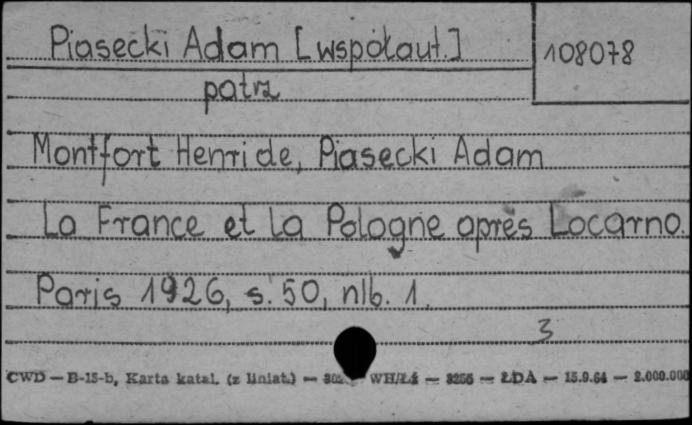 Piasecki Adam [współaut.]
108078
patrz
Montfort Henri de, Piasecki Adam
La France et la Pologne après Locarno.
Paris 1926, s. 50, nlb. 1.
3
CWD — B-15-b, Karta katal. (z liniat.) — WH/Łź — 3256 — ŁDA — 15.9.64 — 2.000.000